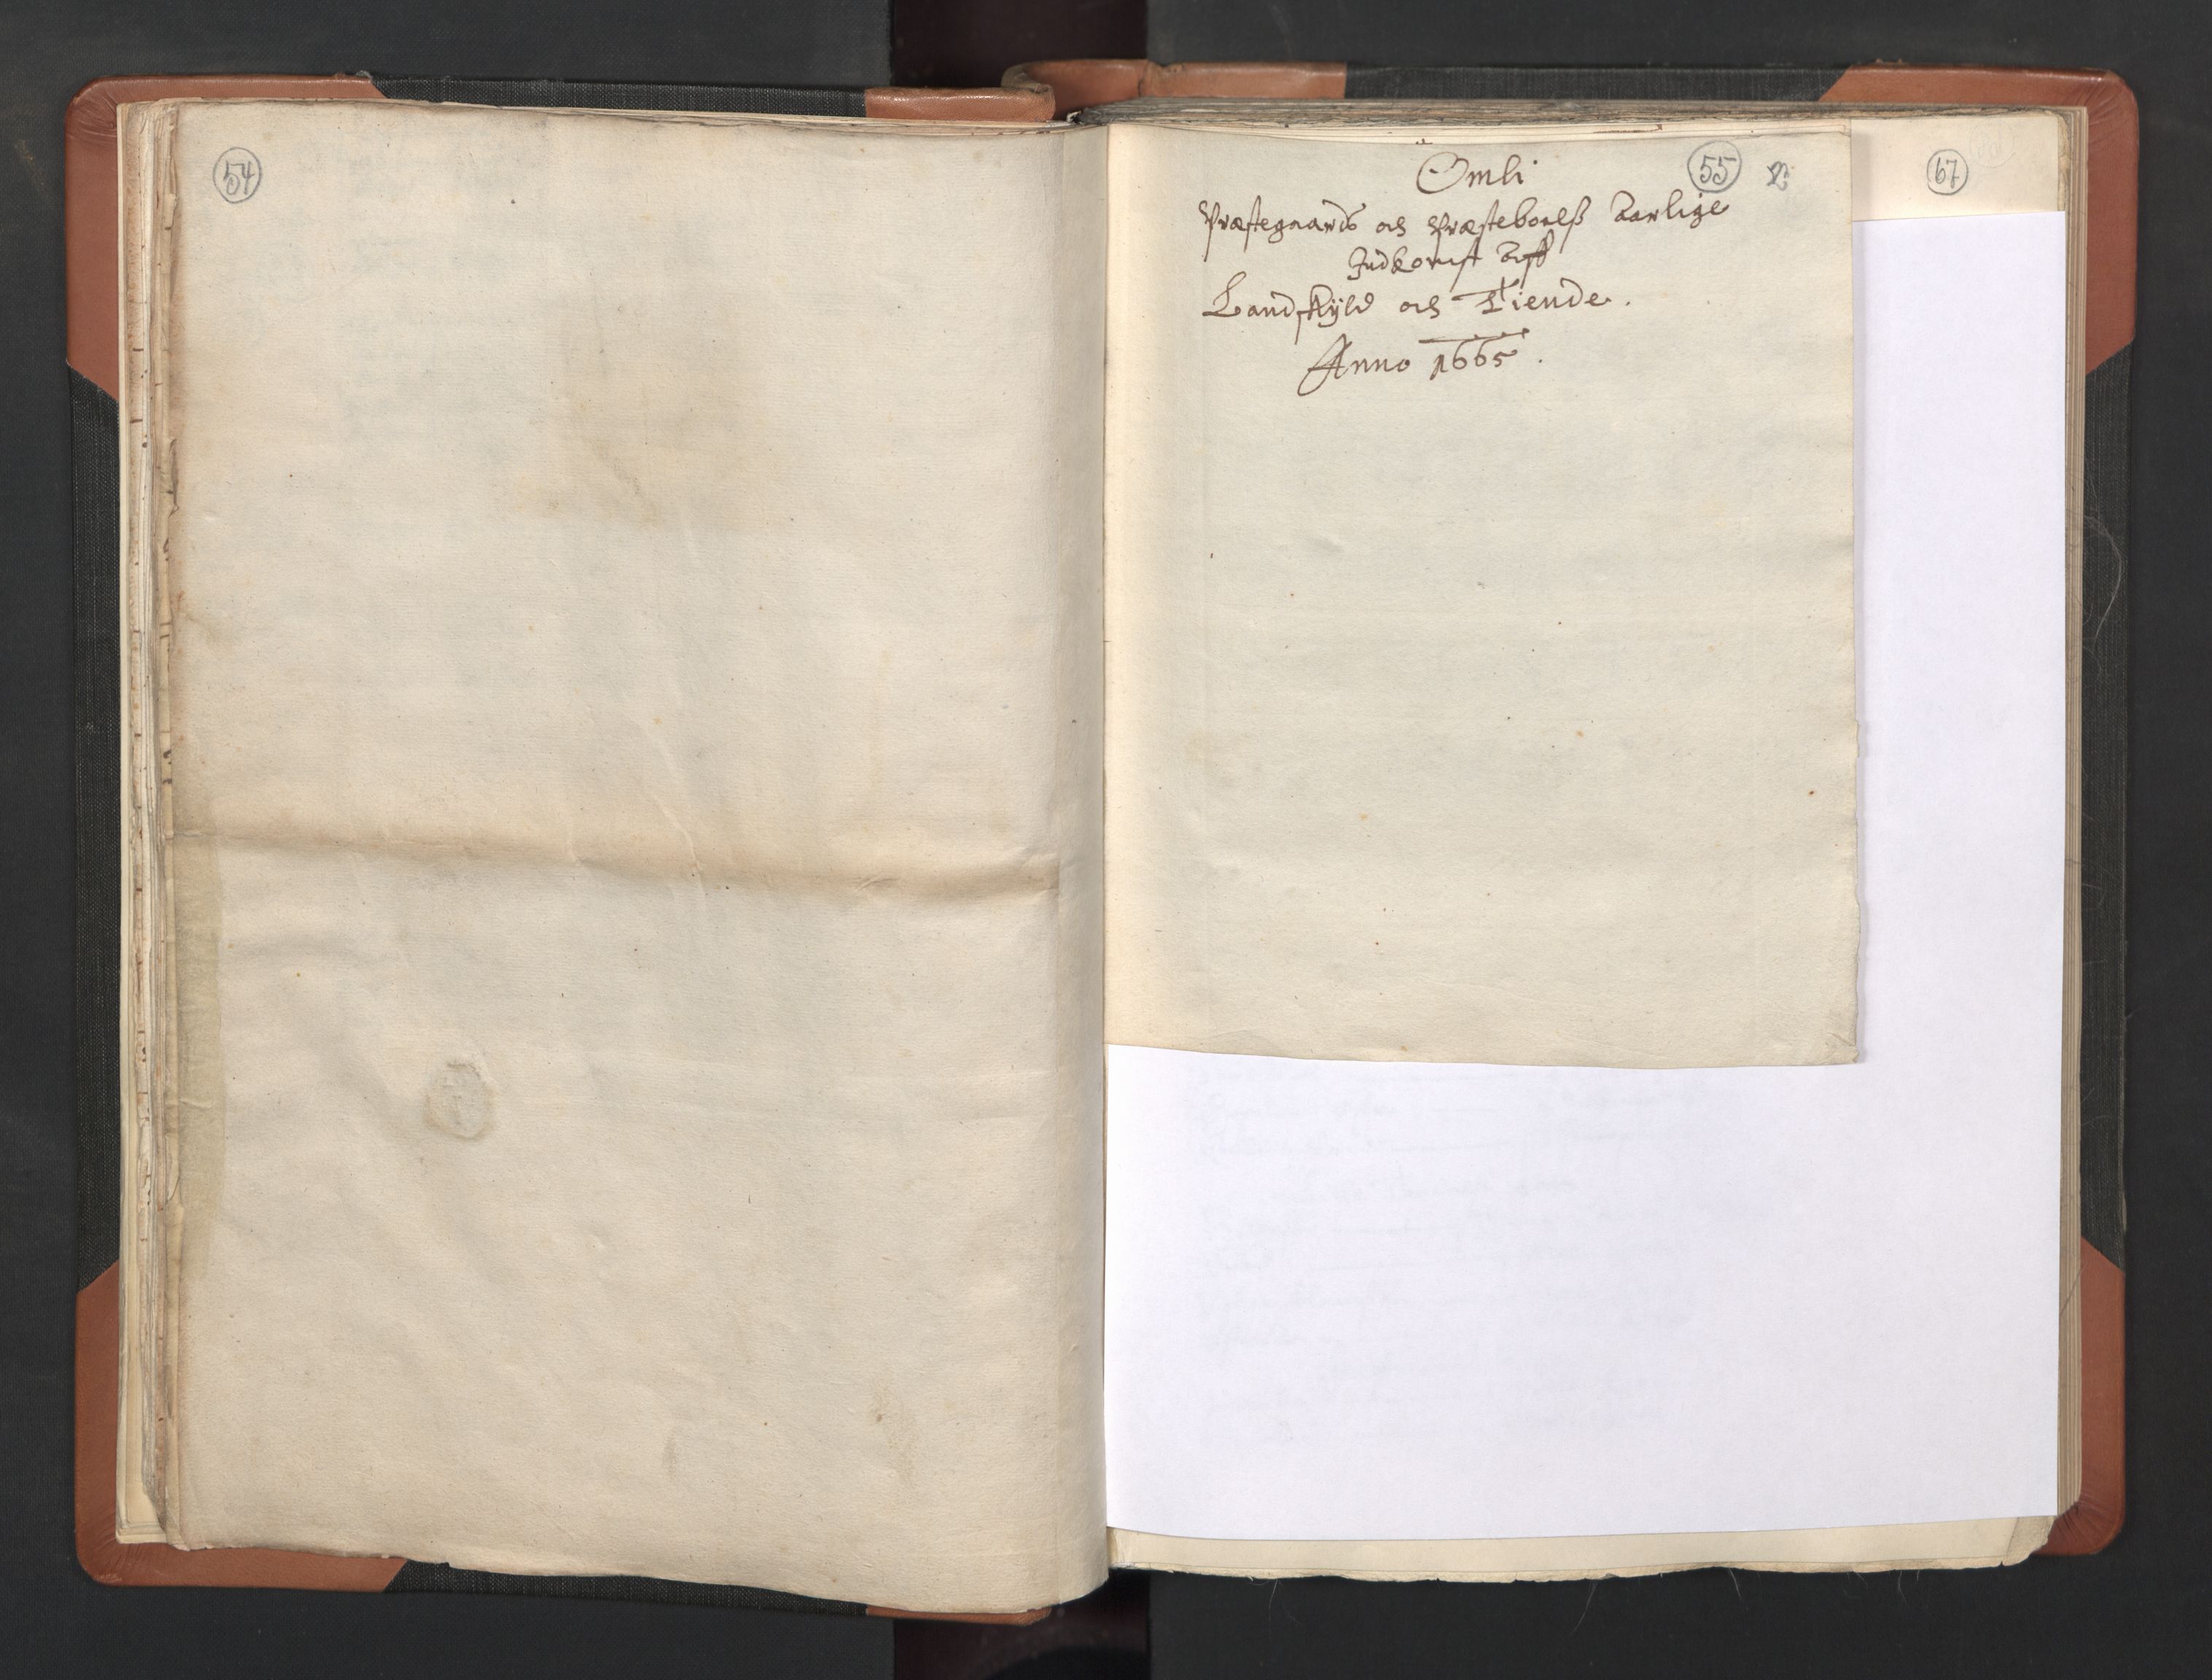 54
Ömli
55
67
Præstegaards och Præsteboelß Aarlige
Indkomst Aff
Landskyld och Tiende.
Anno 1665.